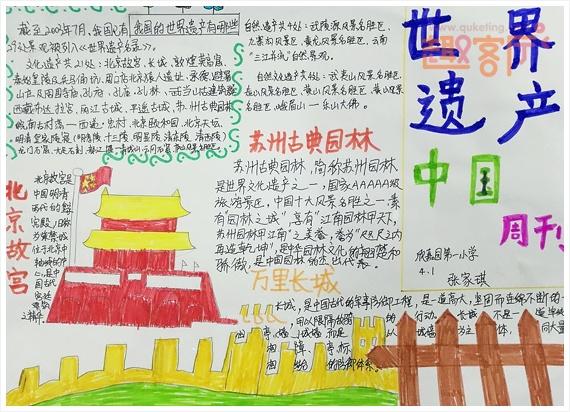 截至2003年7月,我国议有
我国的世界遗产有哪些
29处景观被列入《世界遗产名录》。
文化遗产共21处:北京故宫、长城、敦煌莫高窟、
秦始皇陵及兵马俑坑、周口店北京猿人遗址、承德避暑
山庄及周围寺庙、孔府、孔庙、孔林、武当山古建筑群
西藏布达拉宫、丽江古城、平遥古城、苏州古典园林
皖南古村落—西递·宏村、北京颐和园、北京天坛、
明清皇家陵寝(明显陵 十三陵 明显陵 清东陵 清西陵)
龙门石窟、大足石刻、青城山
自然遗产共4处:武陵源风景名胜区、
九寨沟风景区、黄龙风景名胜区、云南
"三江并流"自然景观。
自然文化遗产共4处:武夷山风景名胜
区、泰山风景名胜区、黄山风景名胜
区、峨眉山—乐山大佛。
www.quketing.com
趣客亭
世界
遗产
中国
周刊
欣嘉园第一小学
4.1
张家琪
苏州古典园林
苏州古典园林,简称苏州园林
是世界文化遗产之一,国家AAAAA级
旅游景区,中国十大风景名胜之一,素
有"园林之城",享有"江南园林甲天下,
苏州园林甲江南"之美誉,誉为"咫尺之内
再造乾坤",是中华园林文化的翘楚和
骄傲,是中国园林的杰出代表。
北京故宫
北京故宫是
中国明清
两代的皇
宫殿,旧称
为紫禁城
位于北京中
轴线的中
心,是中国
古代宫廷
建筑
之精华
万里长城
长城,是中国古代的军事防御工程,是一道高大、坚固而连绵不断的
用以限隔敌骑的行动。长城不是一道
城墙 而是以城墙为主体,同大量
城、障、亭、标
相结合的防御体系。